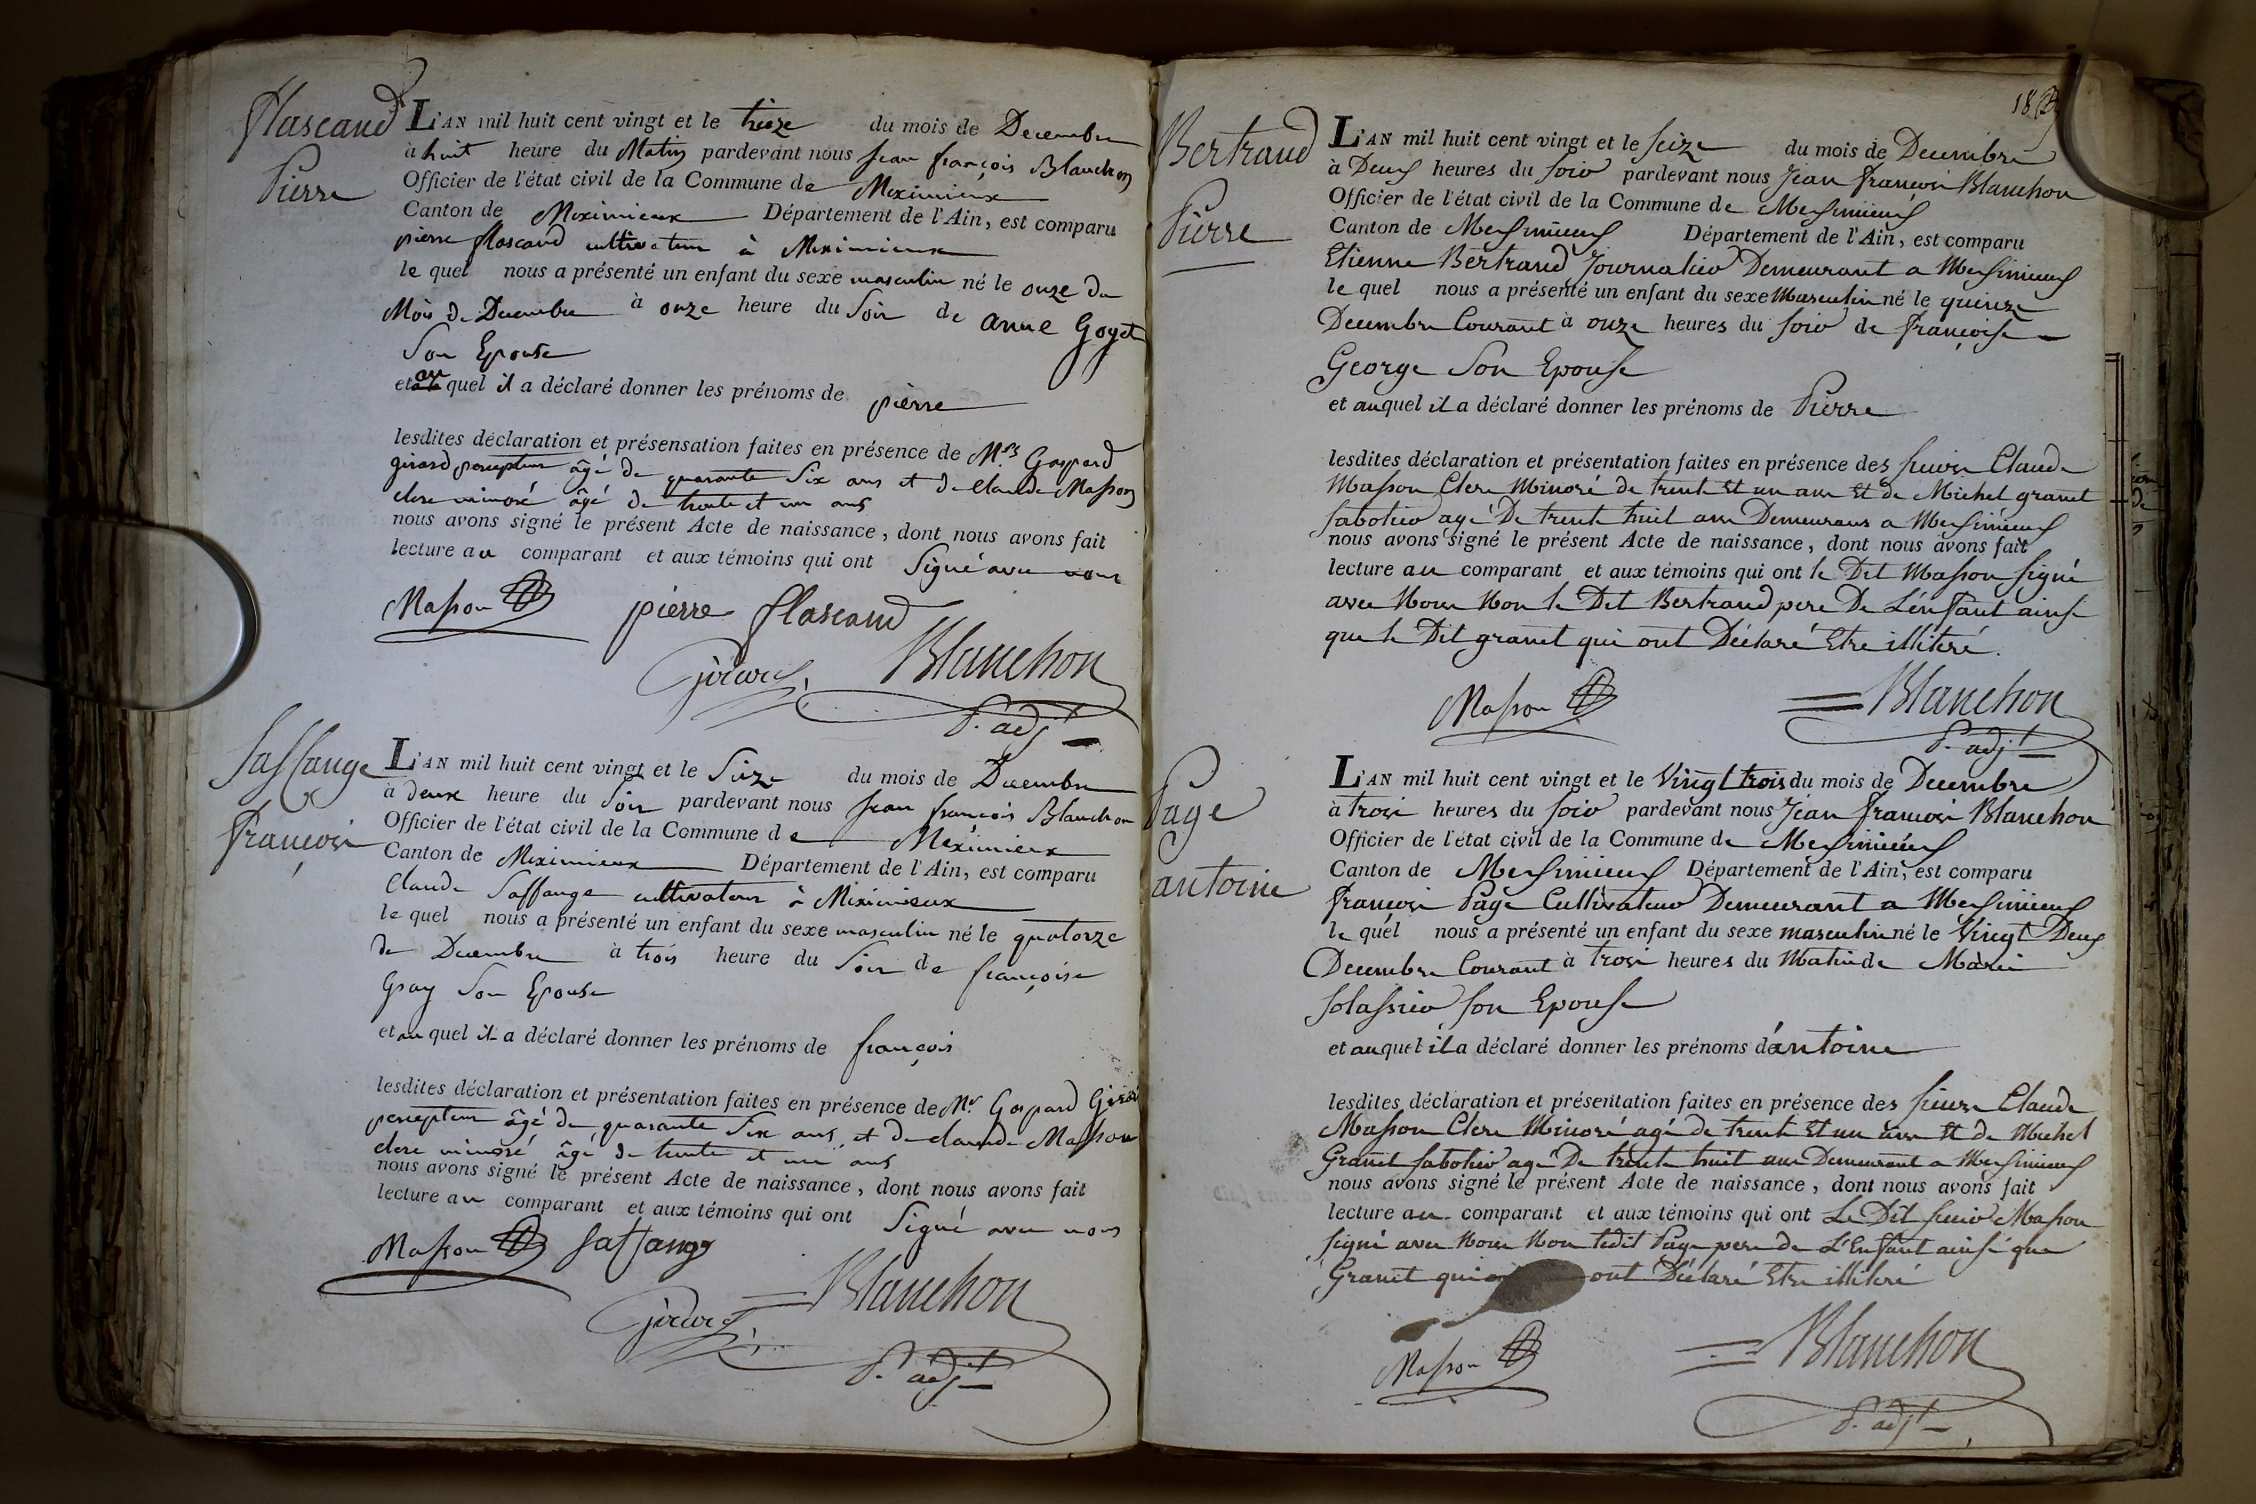 flascand
Pierre
L'AN mil huit cent vingt et le treize du mois de Decembre
à huit heure du Matin pardevant nous jean françois Blanchon
Officier de l'état civil de la Commune de Meximieux
Canton de Meximieux Département de l'Ain, est comparu
pierre flascand cultivateur à Meximieux
le quel nous a présenté un enfant du sexe masculin né le onze du
Mois de Decembre à onze heure du Soir de anne Goyet
Son Epouse
et au quel il a déclaré donner les prénoms de pierre
lesdites déclaration et présensation faites en présence de Mrs Gaspard
girard percepteur âgé de quarante Six ans et de claude Masson
clerc minoré âgé de trente et un ans
nous avons signé le présent Acte de naissance, dont nous avons fait
lecture au comparant et aux témoins qui ont Signé avec nous
Masson pierre flascand
Girard Blanchon
P. adjt
Saffange
françois
L'AN mil huit cent vingt et le Seize du mois de Decembre
à deux heure du Soir pardevant nous jean françois Blanchon
Officier de l'état civil de la Commune de Meximieux
Canton de Meximieux Département de l'Ain, est comparu
Claude Saffange cultivateur à Meximieux
le quel nous a présenté un enfant du sexe masculin né le quatorze
de Decembre à trois heure du Soir de françoise
Gray Son Epouse
et au quel il a déclaré donner les prénoms de françois
lesdites déclaration et présentation faites en présence de Mr Gaspard Girard
percepteur âgé de quarante Six ans, et de claude Masson
clerc minoré âgé de trente et un ans
nous avons signé le présent Acte de naissance, dont nous avons fait
lecture au comparant et aux témoins qui ont Signé avec nous
Masson Saffange
Girard Blanchon
P. adjt
18
Bertrand
Pierre
L'AN mil huit cent vingt et le Seize du mois de Decembre
à Deux heures du soir pardevant nous Jean françois Blanchon
Officier de l'état civil de la Commune de Messimieux
Canton de Messimieux Département de l'Ain, est comparu
Etienne Bertrand Journalier Demeurant a Messimieux
le quel nous a présenté un enfant du sexe Masculin né le quinze
Decembre Courant à onze heures du soir de françoise
George Son Epouse
et auquel il a déclaré donner les prénoms de Pierre
lesdites déclaration et présentation faites en présence des sieurs Claude
Masson Clerc Minoré de trente Et un ans Et de Michel granet
sabotier agé De trente huit ans Demeurans a Messimieux
nous avons signé le présent Acte de naissance, dont nous avons fait
lecture au comparant et aux témoins qui ont le Dit Masson signé
avec Nous Non le Dit Bertrand pere De L'enfant ainsi
que le Dit granet qui ont Déclaré Etre illiteré.
Masson Blanchon
P. adjt
Page
antoine
L'AN mil huit cent vingt et le Vingt trois du mois de Decembre
à trois heures du soir pardevant nous Jean françois Blanchon
Officier de l'état civil de la Commune de Messimieux
Canton de Messimieux Département de l'Ain, est comparu
françois Page Cultivateur Demeurant a Messimieux
le quel nous a présenté un enfant du sexe masculin né le Vingt Deux
Decembre Courant à trois heures du Matin de Marie
solassier son Epouse
et auquel il a déclaré donner les prénoms d'antoine
lesdites déclaration et présentation faites en présence des sieurs Claude
Masson Clerc Minoré agé de trente Et un ans Et de Michel
Granet sabotier agé De trente huit ans Demeurant a Messimieux
nous avons signé le présent Acte de naissance, dont nous avons fait
lecture au comparant et aux témoins qui ont Le Dit sieur Masson
signé avec Nous Non ledit Page pere de L'Enfant ainsi que
Granet qui ont Déclaré Etre illiteré
Masson Blanchon
P. adjt